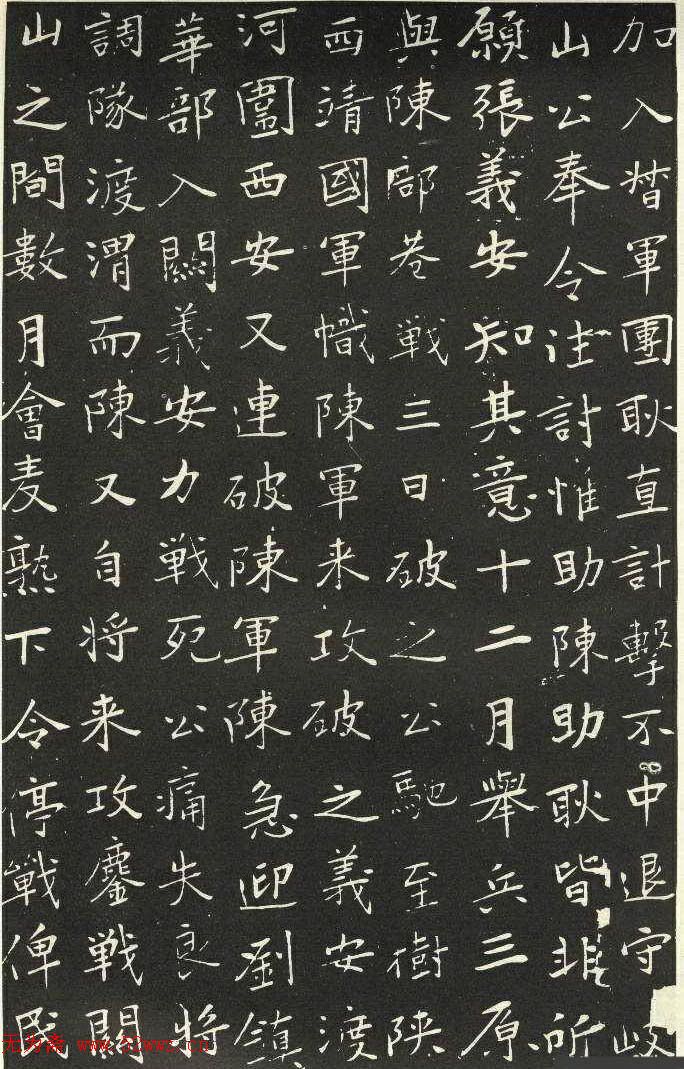 加入督軍團耿直計擊不中退守岐
山公奉令往討惟助陳助耿皆非所
願張義安知其意十二月舉兵三原
與陳部巷戰三日破之公馳至樹陝
西靖國軍幟陳軍来攻破之義安渡
河圍西安又連破陳軍陳急迎劉鎮
華部入關義安力戰死公痛失良將
調隊渡渭而陳又自將来攻鏖戰關
山之間數月會麦熟下令停戰俾民